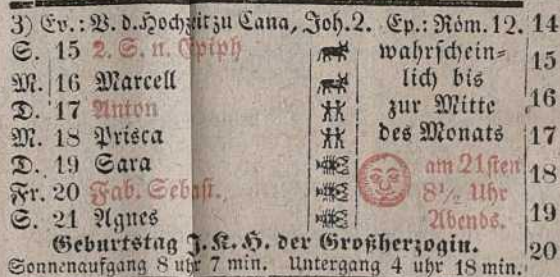 3) Ev.: V. d. Hochzeit zu Cana, Joh. 2. Ep.: Röm. 12. 14
S. 15 2. S. n. Epiph wahrschein= 15
M. 16 Marcell lich bis 16
D. 17 Anton zur Mitte
M. 18 Prisca des Monats 17
D. 19 Sara am 21sten 18
Fr. 20 Fab. Sebast. 8½ Uhr 19
S. 21 Agnes Abends.
Geburtstag J. K. H. der Großherzogin. 20
Sonnenaufgang 8 uhr 7 min. Untergang 4 uhr 18 min.